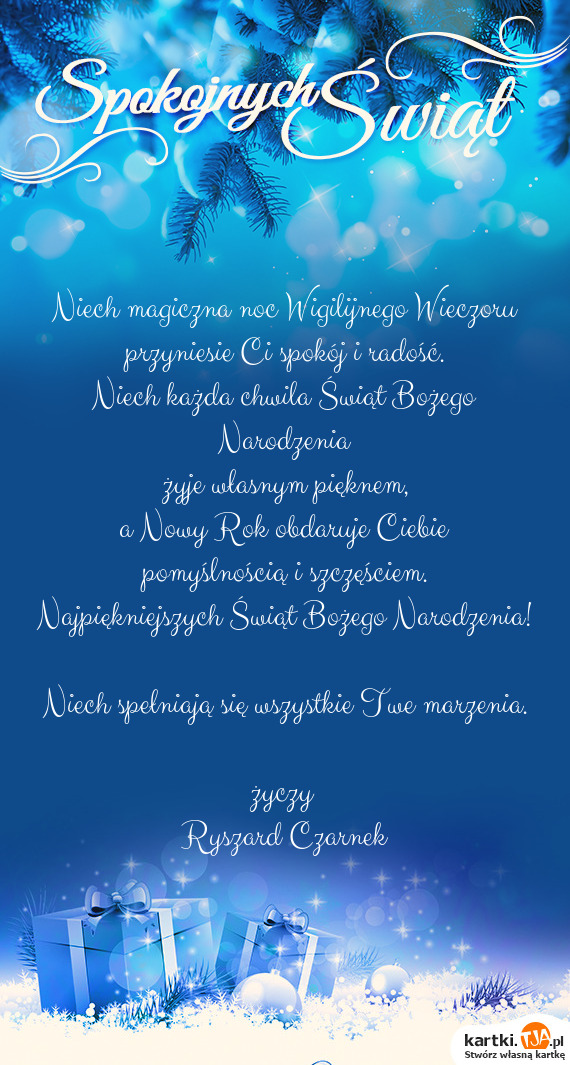 Spokojnych Świąt
Niech magiczna noc Wigilijnego Wieczoru
przyniesie Ci spokój i radość.
Niech każda chwila Świąt Bożego
Narodzenia
żyje własnym pięknem,
a Nowy Rok obdaruje Ciebie
pomyślnością i szczęściem.
Najpiękniejszych Świąt Bożego Narodzenia!
Niech spełniają się wszystkie Twe marzenia.
życzy
Ryszard Czarnek
kartki.TJA.pl
Stwórz własną kartkę